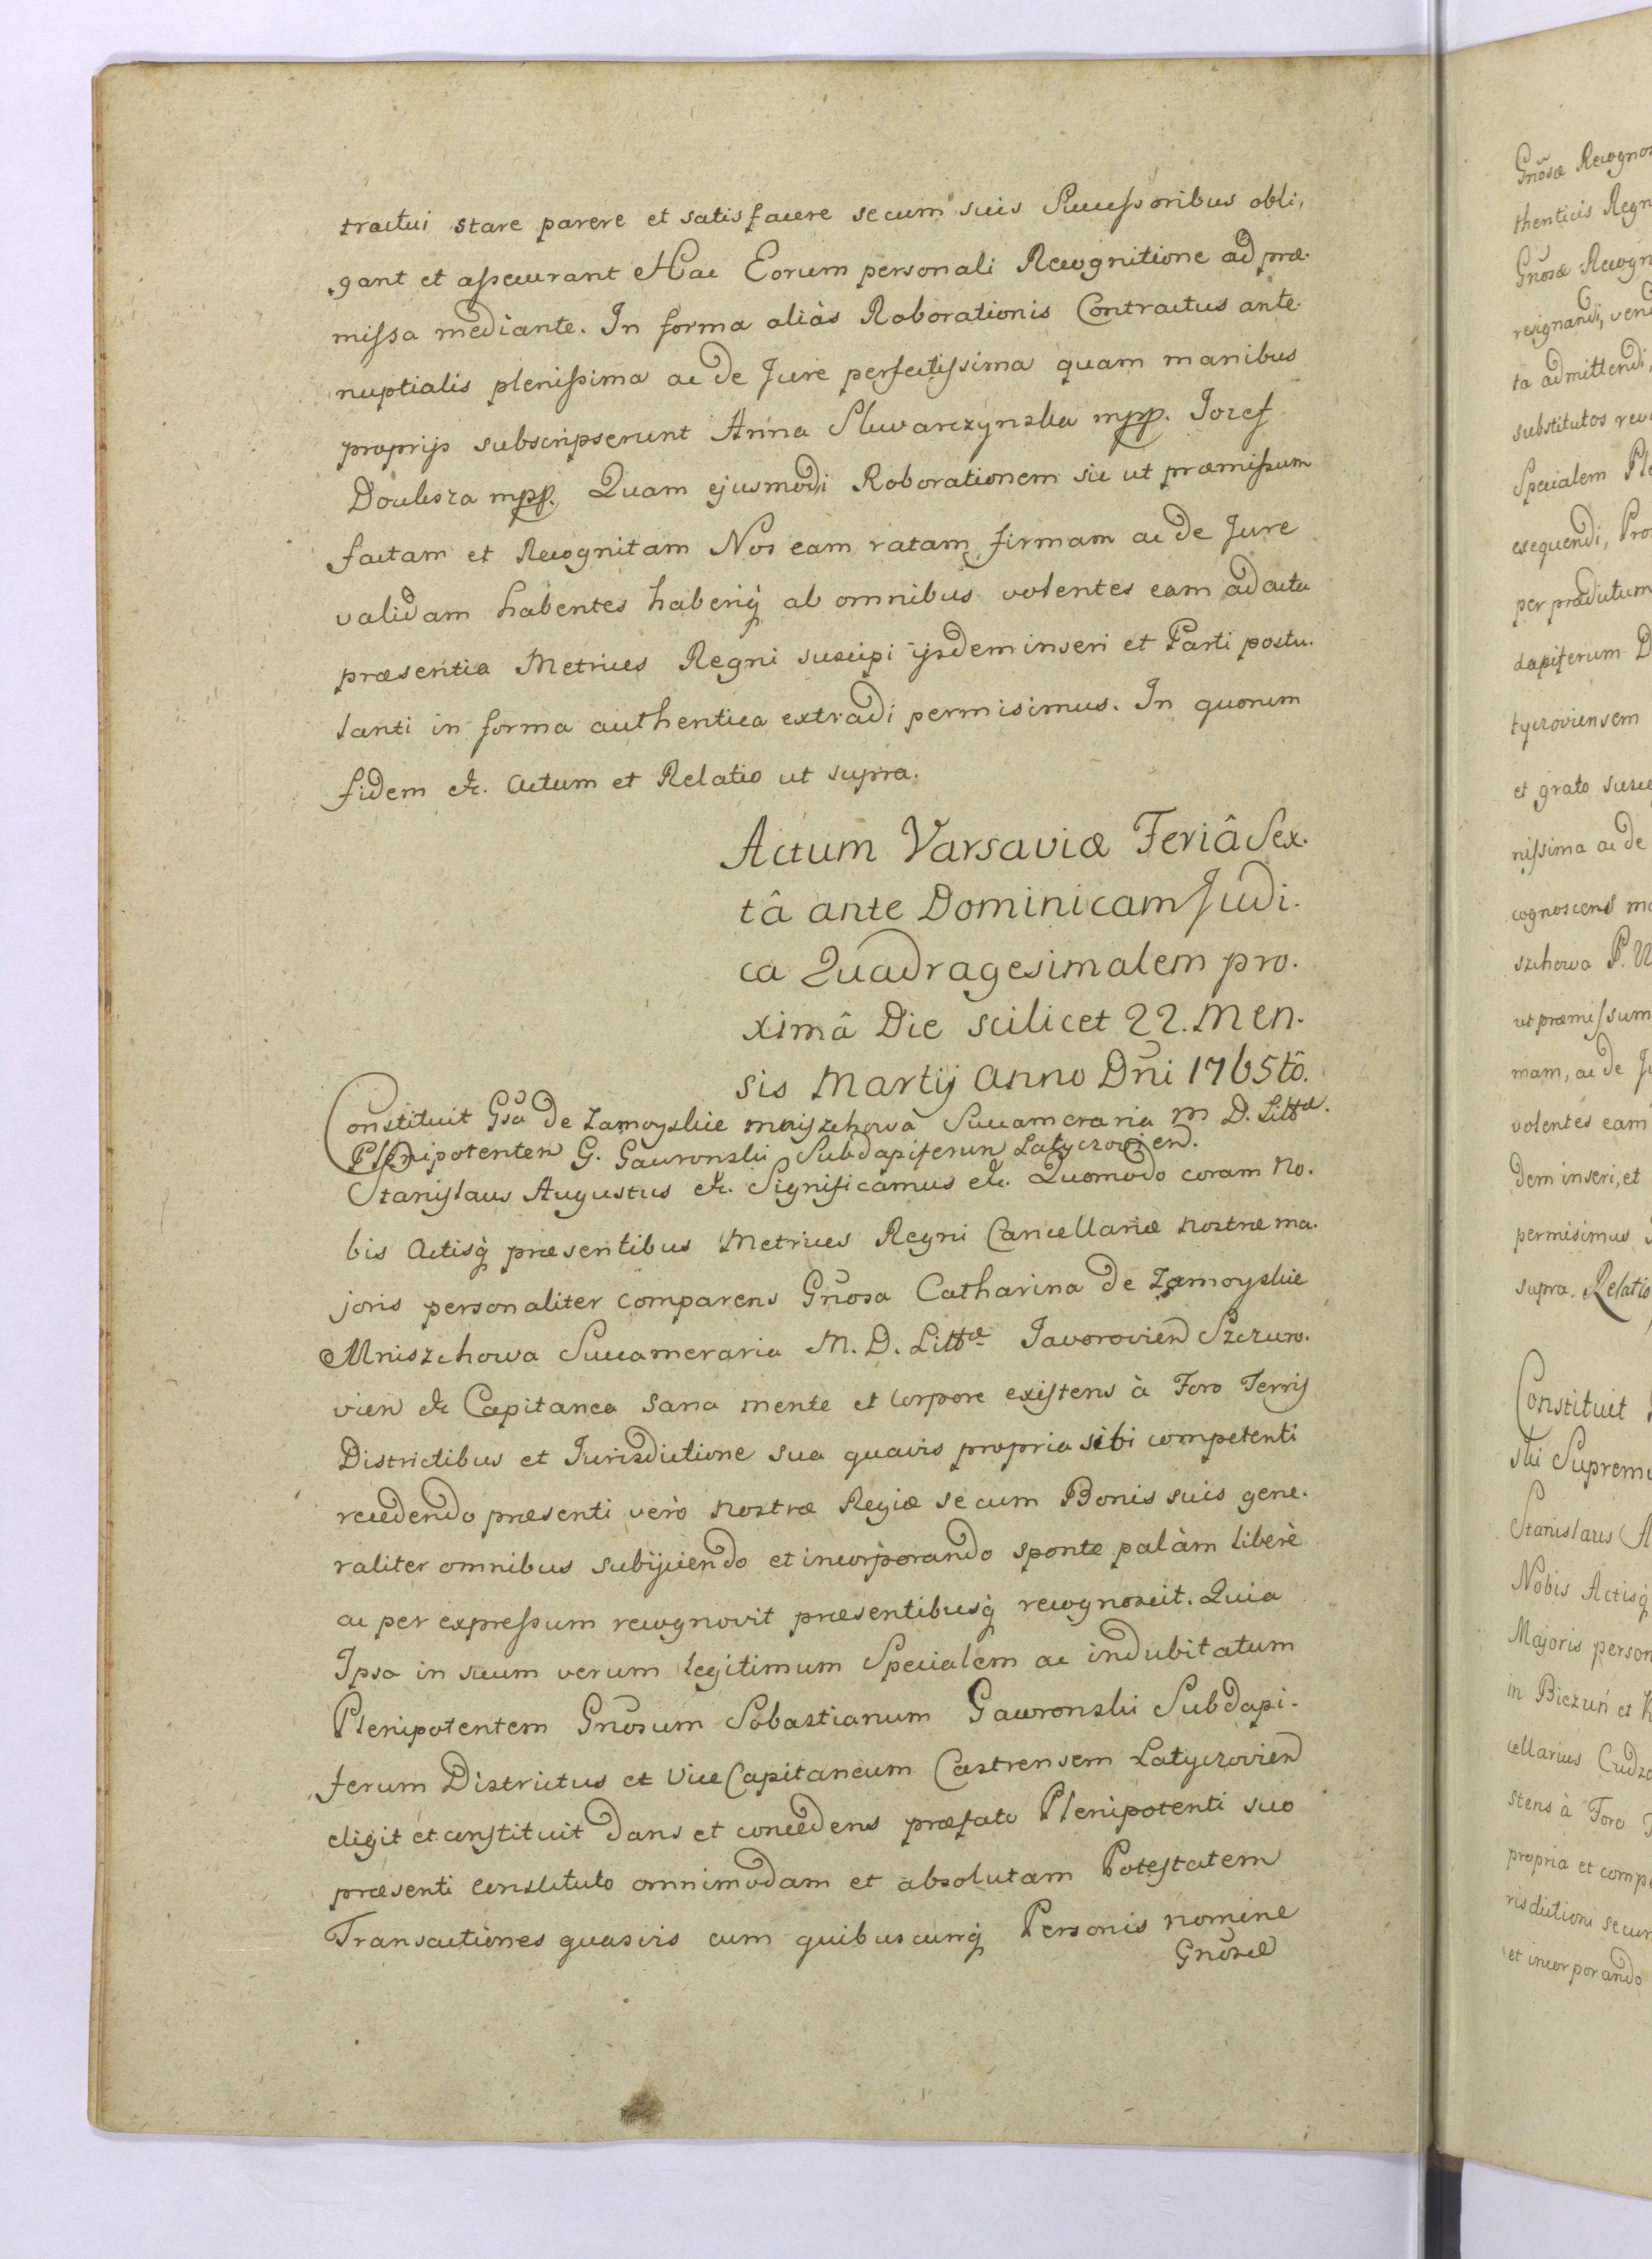 tractui stare parere et satisfacere secum suis Successoribus obli,
gant et assecurant Hac Eorum personali Recognitione ad præ.
missa mediante. In forma aliàs Roborationis Contractus ante.
nuptialis plenissima ac de Jure perfectissima quam manibus
proprijs subscripserunt Anna Skwarczynska mpp. Jozef
mpp. Quam ejusmodi Roborationem sic ut præmissum
factam et Recognitam Nos eam ratam, firmam ac de Jure
validam habentes haberiq́ ab omnibus volentes eam ad acta
præsentia Metrices Regni suscipi ijsdem inseri et Parti postu.
lanti in forma authentica extradi permisimus. In quorum
fidem etc. Actum et Relatio ut supra.
Actum Varsaviæ Feriâ Sex.
tâ ante Dominicam Judi.
ca Quadragesimalem pro.
ximâ Die scilicet 22. Men.
sis Martij Anno Dñi 1765tô.
Constituit Gsã de Zamoyskie Mniszchowa Succameraria M D. Littæ.
Plenipotentem G. Gawronski Subdapiferum Latyczovien.
Stanislaus Augustus etc. Significamus etc. Quomodo coram No.
bis Actisq́ præsentibus Metrices Regni Cancellariæ Nostræ ma.
joris personaliter comparens Gñosa Catharina de Zamoyskie
Mniszchowa Succameraria M. D. Littæ Javorovien Szczuro.
vien etc Capitanea sana mente et corpore existens à Foro Terris
Districtibus et Jurisdictione sua quavis propria sibi competenti
recedendo præsenti verò Nostræ Regiæ se cum Bonis suis gene.
raliter omnibus subijciendo et incorporando sponte palàm liberè
ac per expressum recognovit præsentibusq́ recognoscit. Quia
Ipsa in suum verum legitimum Specialem ac indubitatum
Plenipotentem Gñosum Sebastianum Gawronski Subdapi-
ferum Districtus et Vice Capitaneum Castrensem Latyczovien
eligit et constituit dans et concedens præfato Plenipotenti suo
præsenti constituto omnimodam et absolutam Potestatem
Transactiones quasvis cum quibuscunq́ Personis nomine
Gñosæ
Gñosæ
thenticis
Gñosæ
resignandi,
ta admittendi,
substitutos
Specialem
exequendi,
per prædictum
dapiferum
tyczoviensem
et grato
nissima ac de
cognoscens
szchowa P.
ut præmissum
mam, ac de
volentes eam
dem inseri, et
permisimus
supra. Relatio
Constituit
ski
Stanislaus
Nobis Actisq́
Majoris
in Biezuń et
cellarius
stens à Foro
propria et
risdictioni
et incorporando